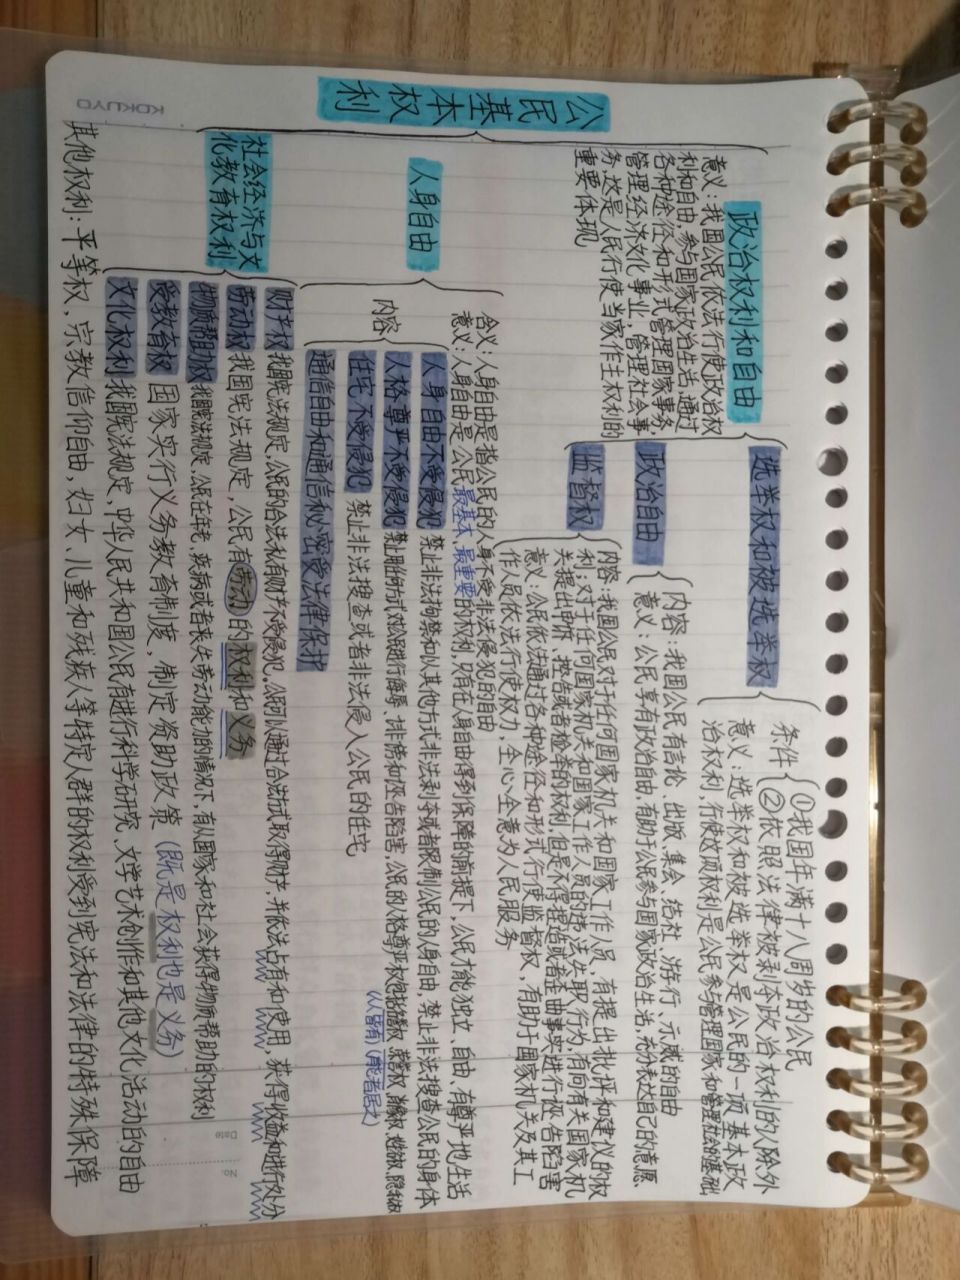 公民基本权利
政治权利和自由
意义：我国公民依法行使政治权
利和自由，参与国家政治生活，通过
各种途径和形式管理国家事务，
管理经济文化事业，管理社会事
务，这是人民行使当家作主权利的
重要体现
选举权和被选举权
条件
①我国年满十八周岁的公民
②依照法律被剥夺政治权利的人除外
意义：选举权和被选举权是公民的一项基本政
治权利，行使这项权利是公民参与管理国家和管理社会的基础
政治自由
内容：我国公民有言论、出版、集会、结社、游行、示威的自由
意义：公民享有政治自由，有助于公民参与国家政治生活，充分表达自己的意愿、
监督权
内容：我国公民对于任何国家机关和国家工作人员，有提出批评和建议的权
利；对于任何国家机关和国家工作人员的违法失职行为，有向有关国家机
关提出申诉、控告或者检举的权利，但是不得捏造或者歪曲事实进行诬告陷害
意义：公民依法通过各种途径和形式行使监督权，有助于国家机关及其工
作人员依法行使权力，全心全意为人民服务
人身自由
含义：人身自由是指公民的人身不受非法侵犯的自由
意义：人身自由是公民最基本、最重要的权利，只有在人身自由得到保障的前提下，公民才能独立、自由、有尊严地生活
内容
人身自由不受侵犯 禁止非法拘禁和以其他方式非法剥夺或者限制公民的人身自由，禁止非法搜查公民的身体
人格尊严不受侵犯 禁止用任何方式对公民进行侮辱、诽谤和诬告陷害，公民的人格尊严权包括名誉权、荣誉权、肖像权、姓名权、隐私权
(人皆有)
住宅不受侵犯 禁止非法搜查或者非法侵入公民的住宅
通信自由和通信秘密受法律保护
社会经济与文
化教育权利
财产权 我国宪法规定，公民的合法私有财产不受侵犯。公民可以通过合法方式取得财产，并依法占有和使用，获得收益和进行处分
劳动权 我国宪法规定，公民有劳动的权利和义务
物质帮助权 我国宪法规定，公民在年老、疾病或者丧失劳动能力的情况下，有从国家和社会获得物质帮助的权利
受教育权 国家实行义务教育制度，制定资助政策（既是权利也是义务）
文化权利 我国宪法规定，中华人民共和国公民有进行科学研究、文学艺术创作和其他文化活动的自由
其他权利：平等权，宗教信仰自由，妇女、儿童和残疾人等特定人群的权利受到宪法和法律的特殊保障
KOKUYO
Date
No